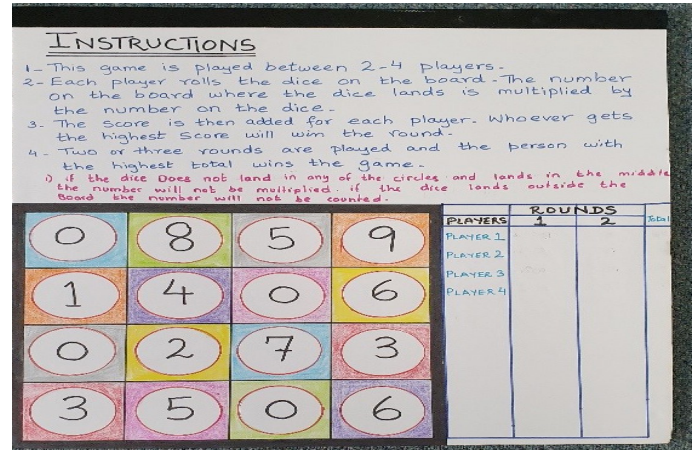 INSTRUCTIONS
1- This game is played between 2-4 players.
2- Each player rolls the dice on the board. The number
on the board where the dice lands is multiplied by
the number on the dice.
3- The score is then added for each player. Whoever gets
the highest score will win the round.
4- Two or three rounds are played and the person with
the highest total wins the game.
i) if the dice Does not land in any of the circles and lands in the middle
the number will not be multiplied. if the dice lands outside the
Board the number will not be counted.
0 8 5 9
1 4 0 6
0 2 7 3
3 5 0 6
ROUNDS
PLAYERS 1 2 Total
PLAYER 1
PLAYER 2
PLAYER 3
PLAYER 4